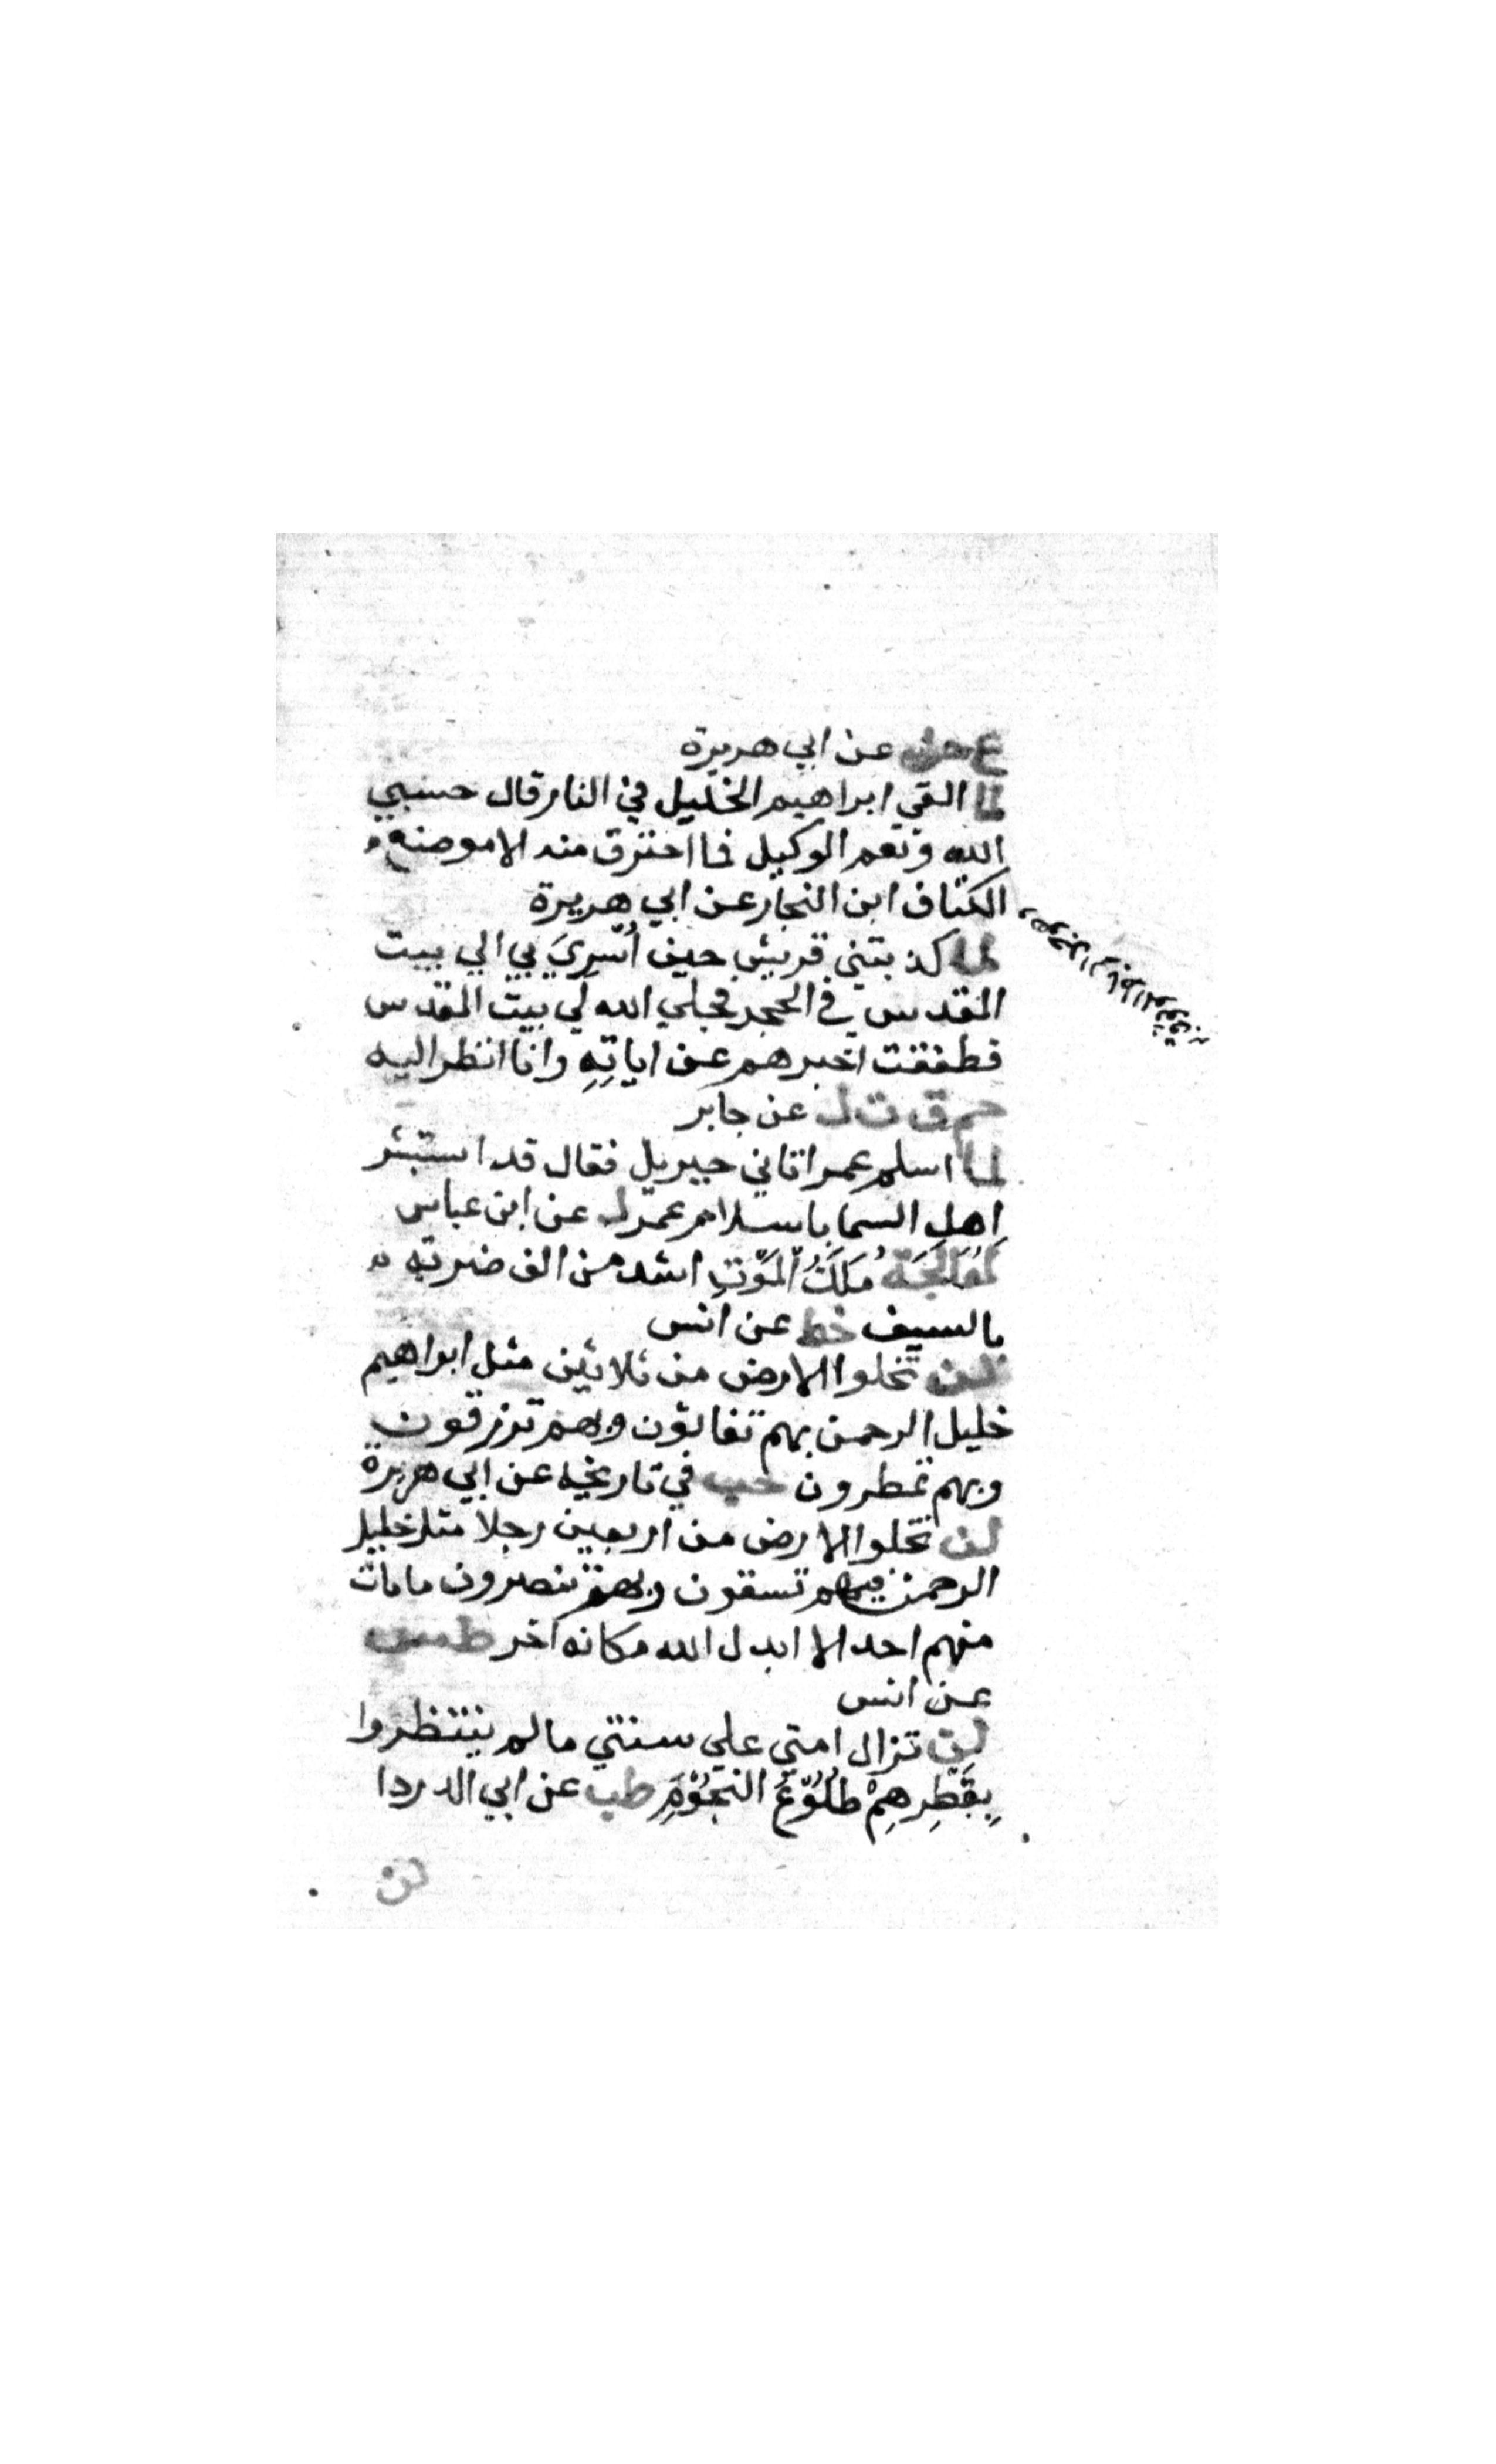 ع حل عن ابي هريرة
لما القي ابراهيم الخليل في النار قال حسبي
الله ونعم الوكيل فما احترق منه الا موضع
الكتاف ابن النجار عن ابي هريرة
لما كذبتني قريش حين أُسْرِيَ بي الي بيت
المقدس في الحجر فجلي الله لي بيت المقدس
فطفقت اخبرهم عن اياتِهِ وانا انظر اليه
حم ق ت ن عن جابر
لما اسلم عمر اتاني جبريل فقال قد استبشر
اهل السما باسلام عمر ك عن ابن عباس
لَمُعَالَجَةُ مَلَكِ الْمَوْتِ اشد من الف ضربة
بالسيف خط عن انس
لن تخلوا الارض من ثلاثين مثل ابراهيم
خليل الرحمن بهم تغاثون وبهم ترزقون
وبهم تمطرون حب في تاريخه عن ابي هريرة
لن تخلوا الارض من اربعين رجلا مثل خليل
الرحمن فبهم تسقون وبهم تنصرون ما مات
منهم احد الا ابدل الله مكانه آخر طس
عن انس
لن تزال امتي علي سنتي ما لم ينتظروا
بِفِطْرِهِمْ طُلُوْعَ النجُوْمِ طب عن ابي الدردا
لن